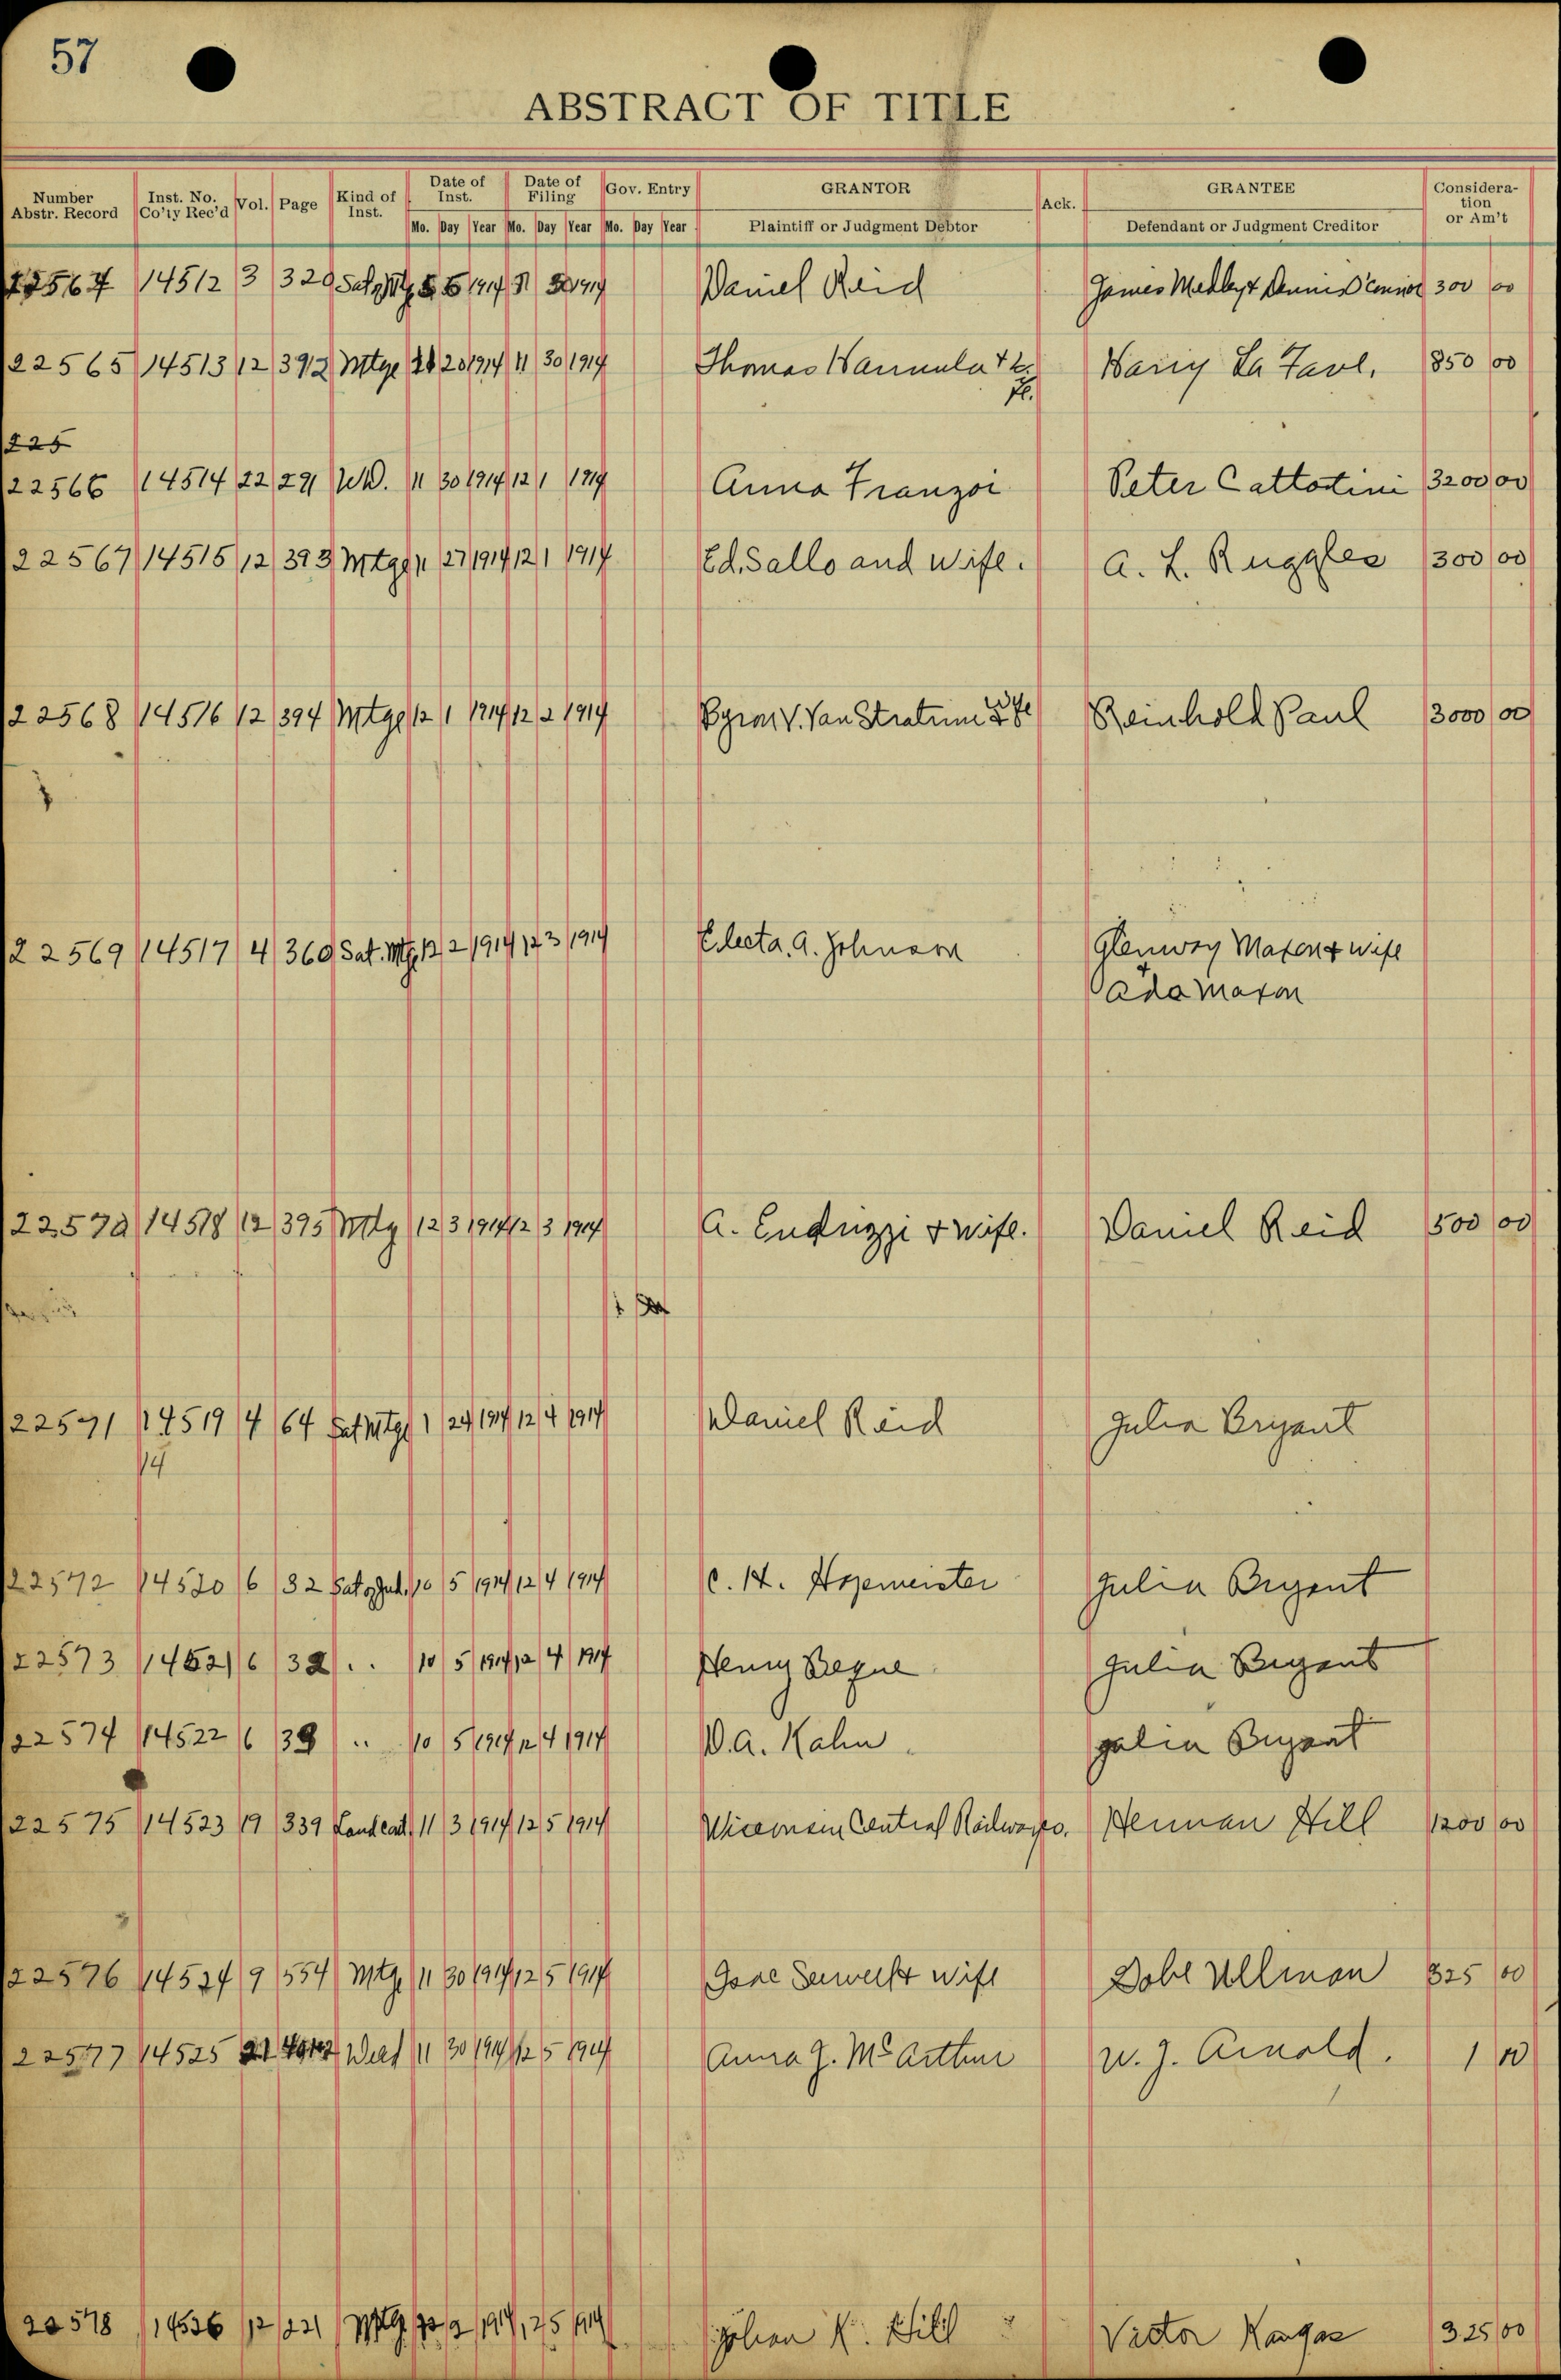 57
ABSTRACT OF TITLE
Number Abstr. Record Inst. No. Co'ty Rec'd Vol. Page Kind of Inst. Date of Inst. Date of Filing Gov. Entry GRANTOR Ack. GRANTEE Consideration or Am't
Mo. Day Year Mo. Day Year Mo. Day Year Plaintiff or Judgment Debtor Defendant or Judgment Creditor
22564 14512 3 320 1914 1914 Daniel Reid James Medley & Dennis 300 00
22565 14513 12 392 Mtge 20 1914 11 30 1914 Thomas Hannula + Harry La Favl. 850 00
225
22566 14514 22 291 W.D. 11 30 1914 12 1 1914 Anna Franzoi Peter Cattotini 3200 00
22567 14515 12 393 Mtge 11 27 1914 12 1 1914 Ed. Sallo and Wife. A. L. Ruggles 300 00
22568 14516 12 394 Mtge 12 1 1914 12 2 1914 Byron V. Van Stratum Reinhold Paul 3000 00
22569 14517 4 360 Sat. Mtg. 12 2 1914 12 3 1914 Electa. A. Johnson Glenway Maxon & wife
Ada Maxon
22570 14518 12 395 Mtg 12 3 1914 12 3 1914 A. Endrizzi & wife. Daniel Reid 500 00
22571 14519 4 64 Sat Mtge 1 24 1914 12 4 1914 Daniel Reid Julia Bryant
14
22572 14520 6 32 Sat of Jud. 10 5 1914 12 4 1914 C. H. Hogemeister Julia Bryant
22573 14521 6 32 .. 10 5 1914 12 4 1914 Henry Julia Bryant
22574 14522 6 .. 10 5 1914 12 4 1914 W. A. Kahn. Julia Bryant
22575 14523 19 339 Land Cont. 11 3 1914 12 5 1914 Wisconsin Central Railway Co. Herman Hill 1200 00
22576 14524 9 554 Mtg. 11 30 1914 12 5 1914 wife Ullman 825 00
22577 14525 21 11 30 1914 12 5 1914 Anna J. McArthur W. J. Arnold. 1 00
22578 14526 12 221 Mtg. 2 1914 12 5 1914 Johan K. Hill Victor Kangas 325 00